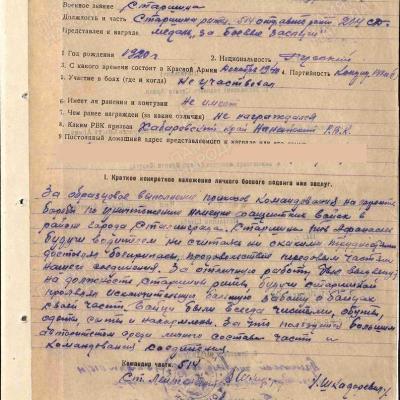 Военное звание Старшина
Должность и часть Старшина роты 514 204 сд.
Представлен к награде медаль "За боевые заслуги"
1. Год рождения 1920 г. 2. Национальность Русский
3. С какого времени состоит в Красной Армии Декабря 1940 4. Партийность Кандид.
5. Участие в боях (где и когда) Не участвовал
6. Имеет ли ранения и контузии Не имеет
7. Чем ранее награжден (за какие отличия) Не награждался
8. Каким РВК призван Хабаровский край Нанайский Р.В.К.
9. Постоянный домашний адрес
I. Краткое конкретное изложение личного боевого подвига или заслуг.
За образцовое выполнение приказов командования на фронте
борьбы по уничтожению немецко фашистских войск в
районе города Сталинграда. Старшина
будучи водителем не считаясь ни с какими трудностями
доставлял боеприпасы, продовольствие передовым частям
нашего соединения. За отличную работу был выдвинут
на должность старшины роты, будучи старшиной
проявлял исключительную заботу о бойцах
своей части. Бойцы были всегда чистыми, обуты,
одеты сыты и накормлены. За что пользуется большим
авторитетом среди личного состава части и
командования соединения.
Командир части 514
Ст. Лейтенант